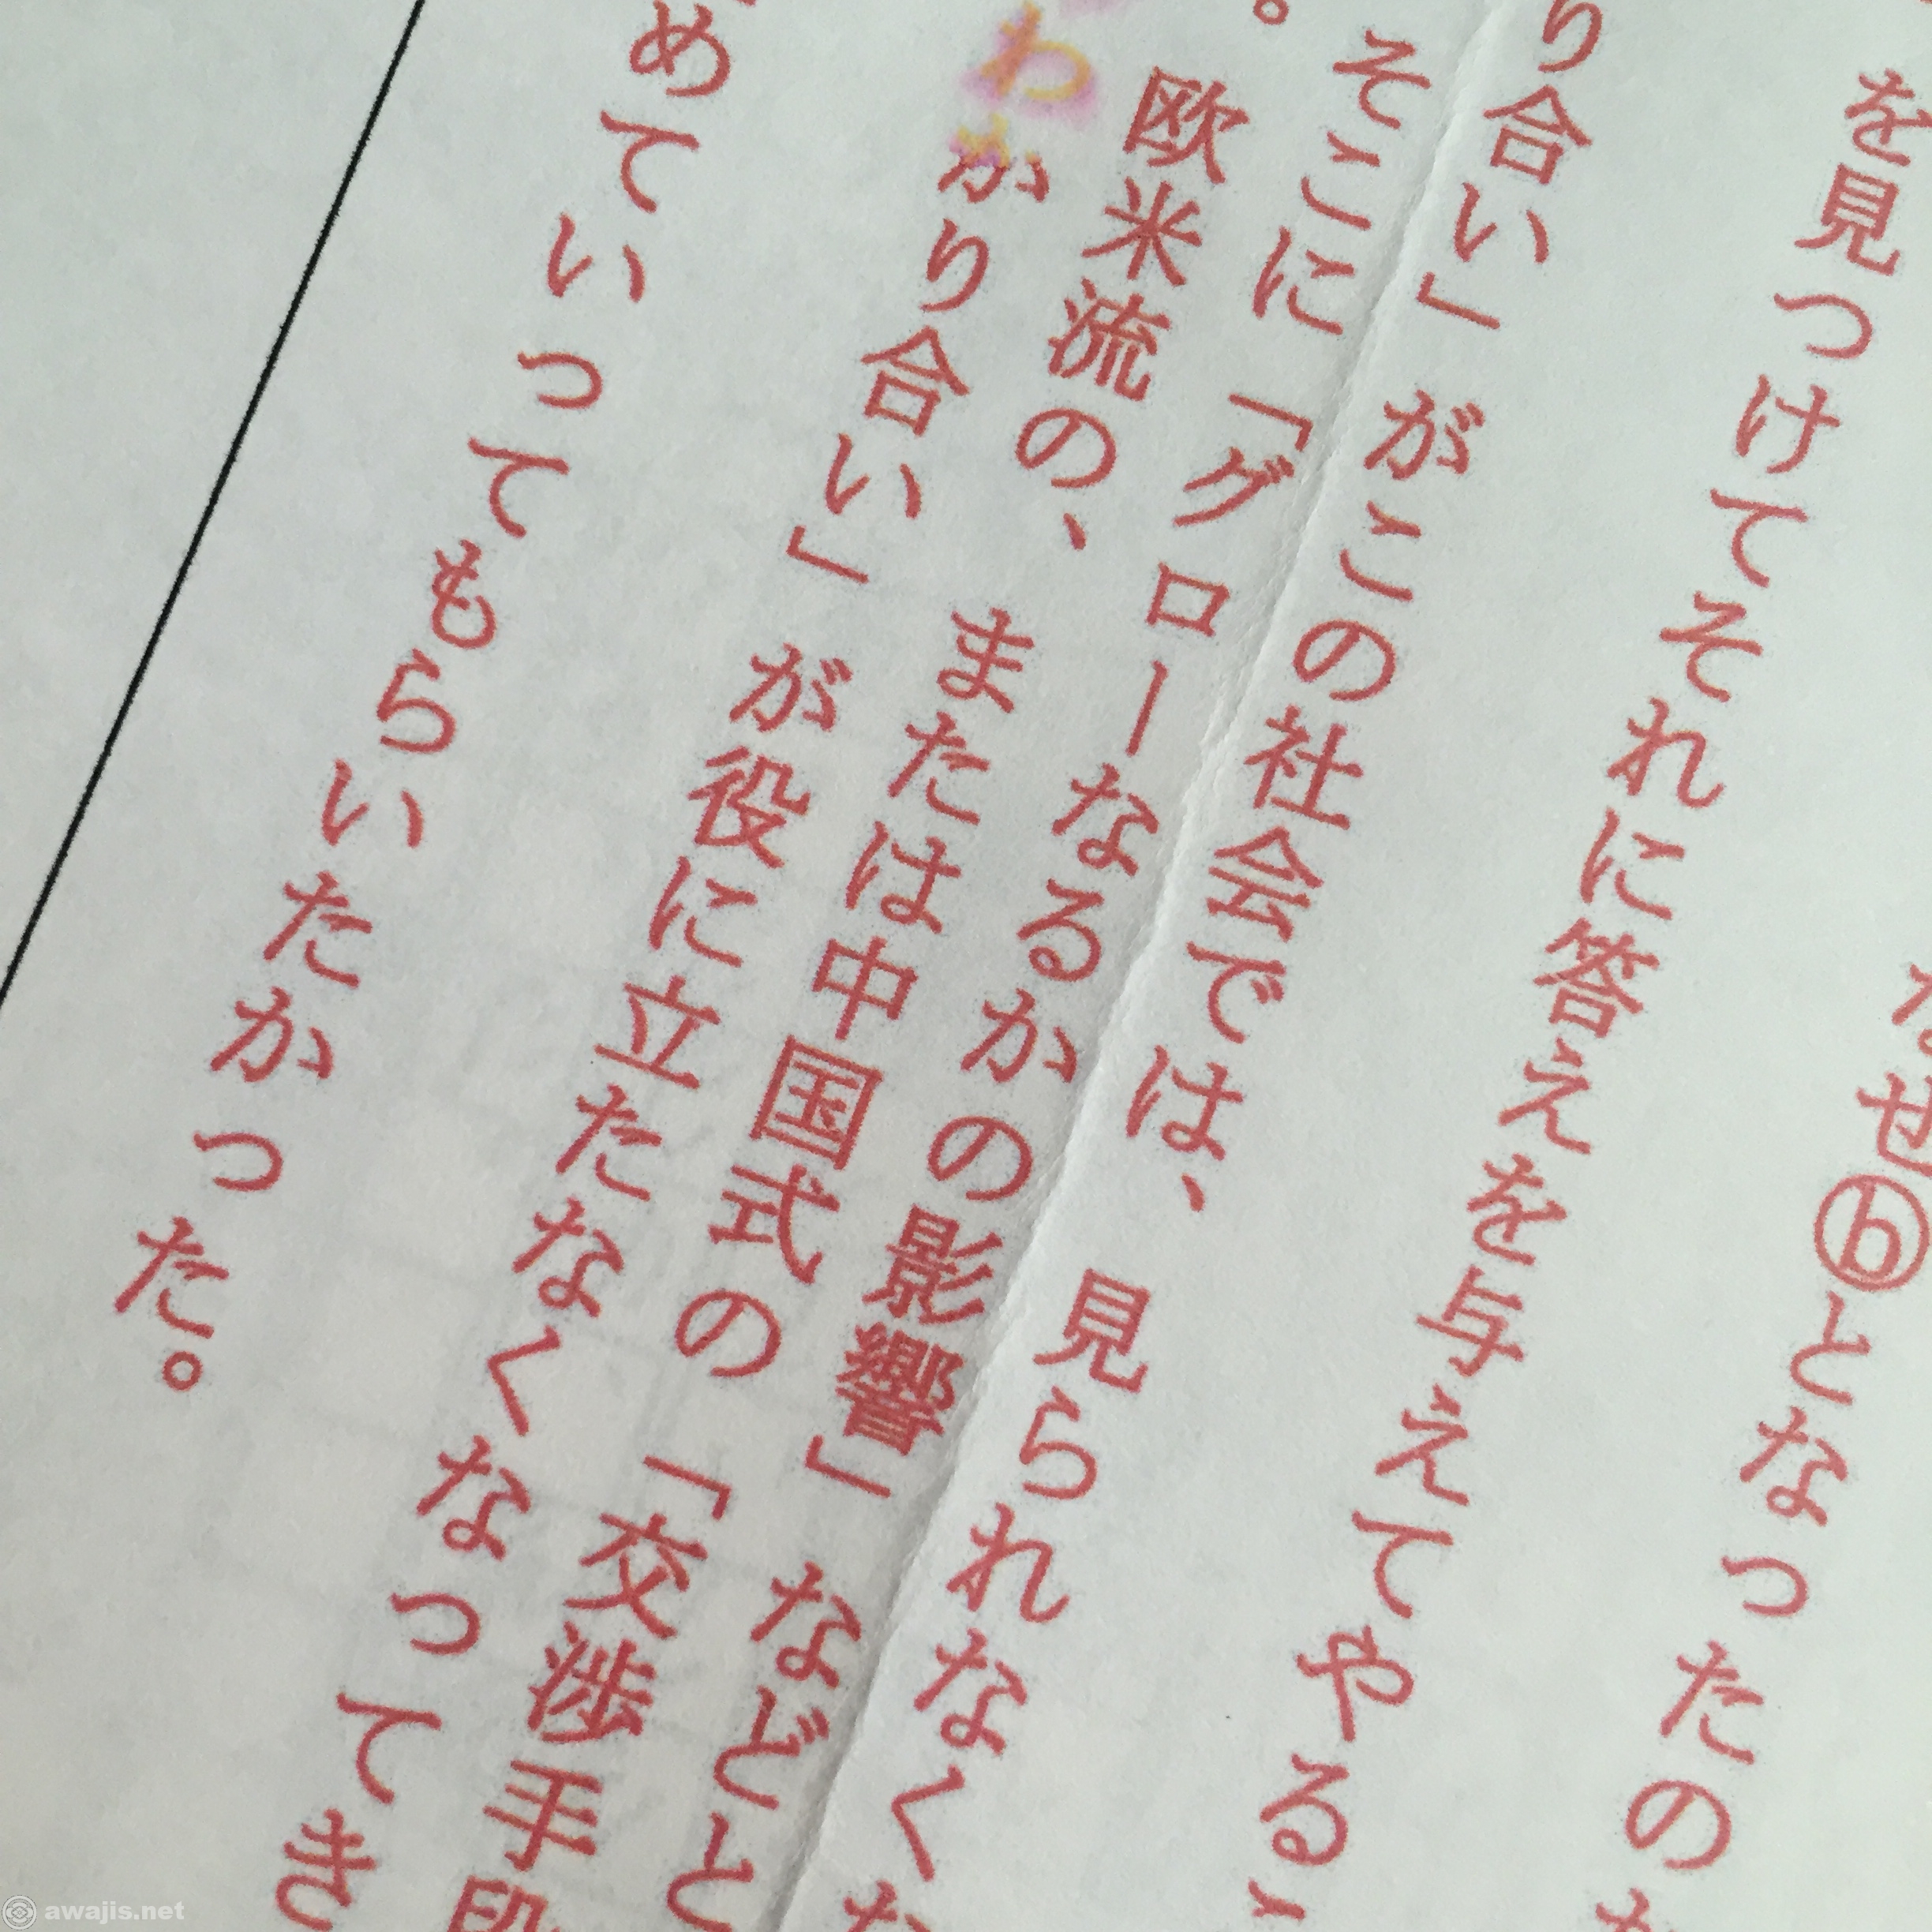 なぜⓑとなったの
を見つけてそれに答えを与えてやるこ
り合い」がこの社会では、見られなくな
。そこに「グローなるかの影響」などと
欧米流の、または中国式の「交渉手段
わかり合い」が役に立たなくなってき
めていってもらいたかった。
awajis.net